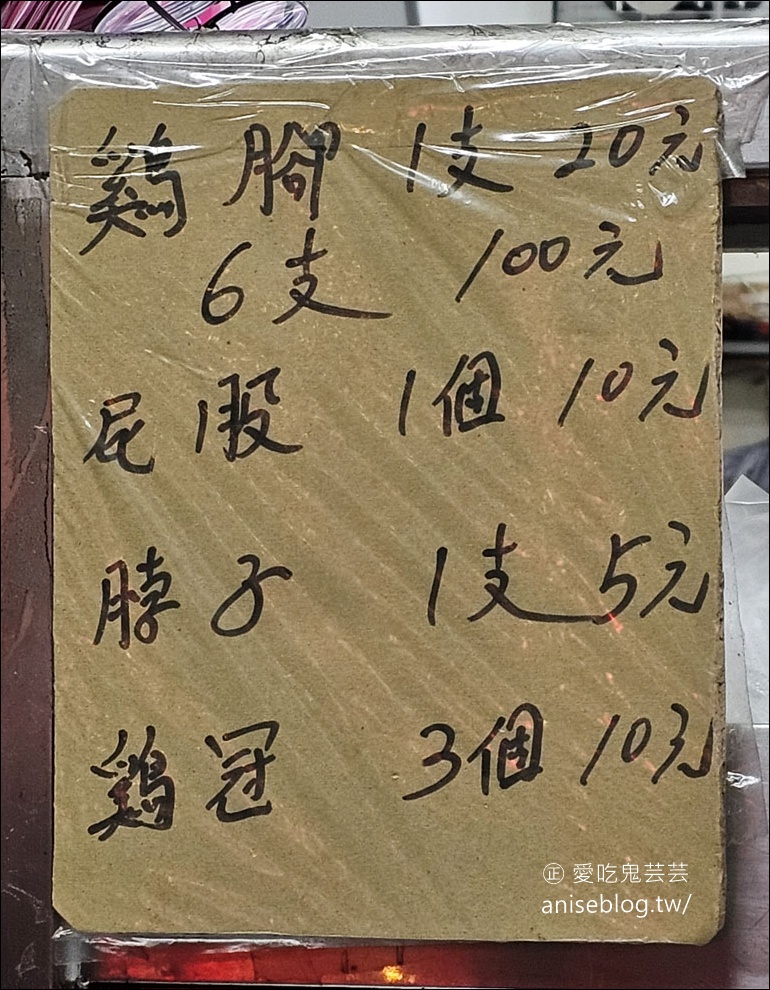 鷄腳 1支 20元
6支 100元
屁股 1個 10元
脖子 1支 5元
鷄冠 3個 10元
㊣ 愛吃鬼芸芸
aniseblog.tw/